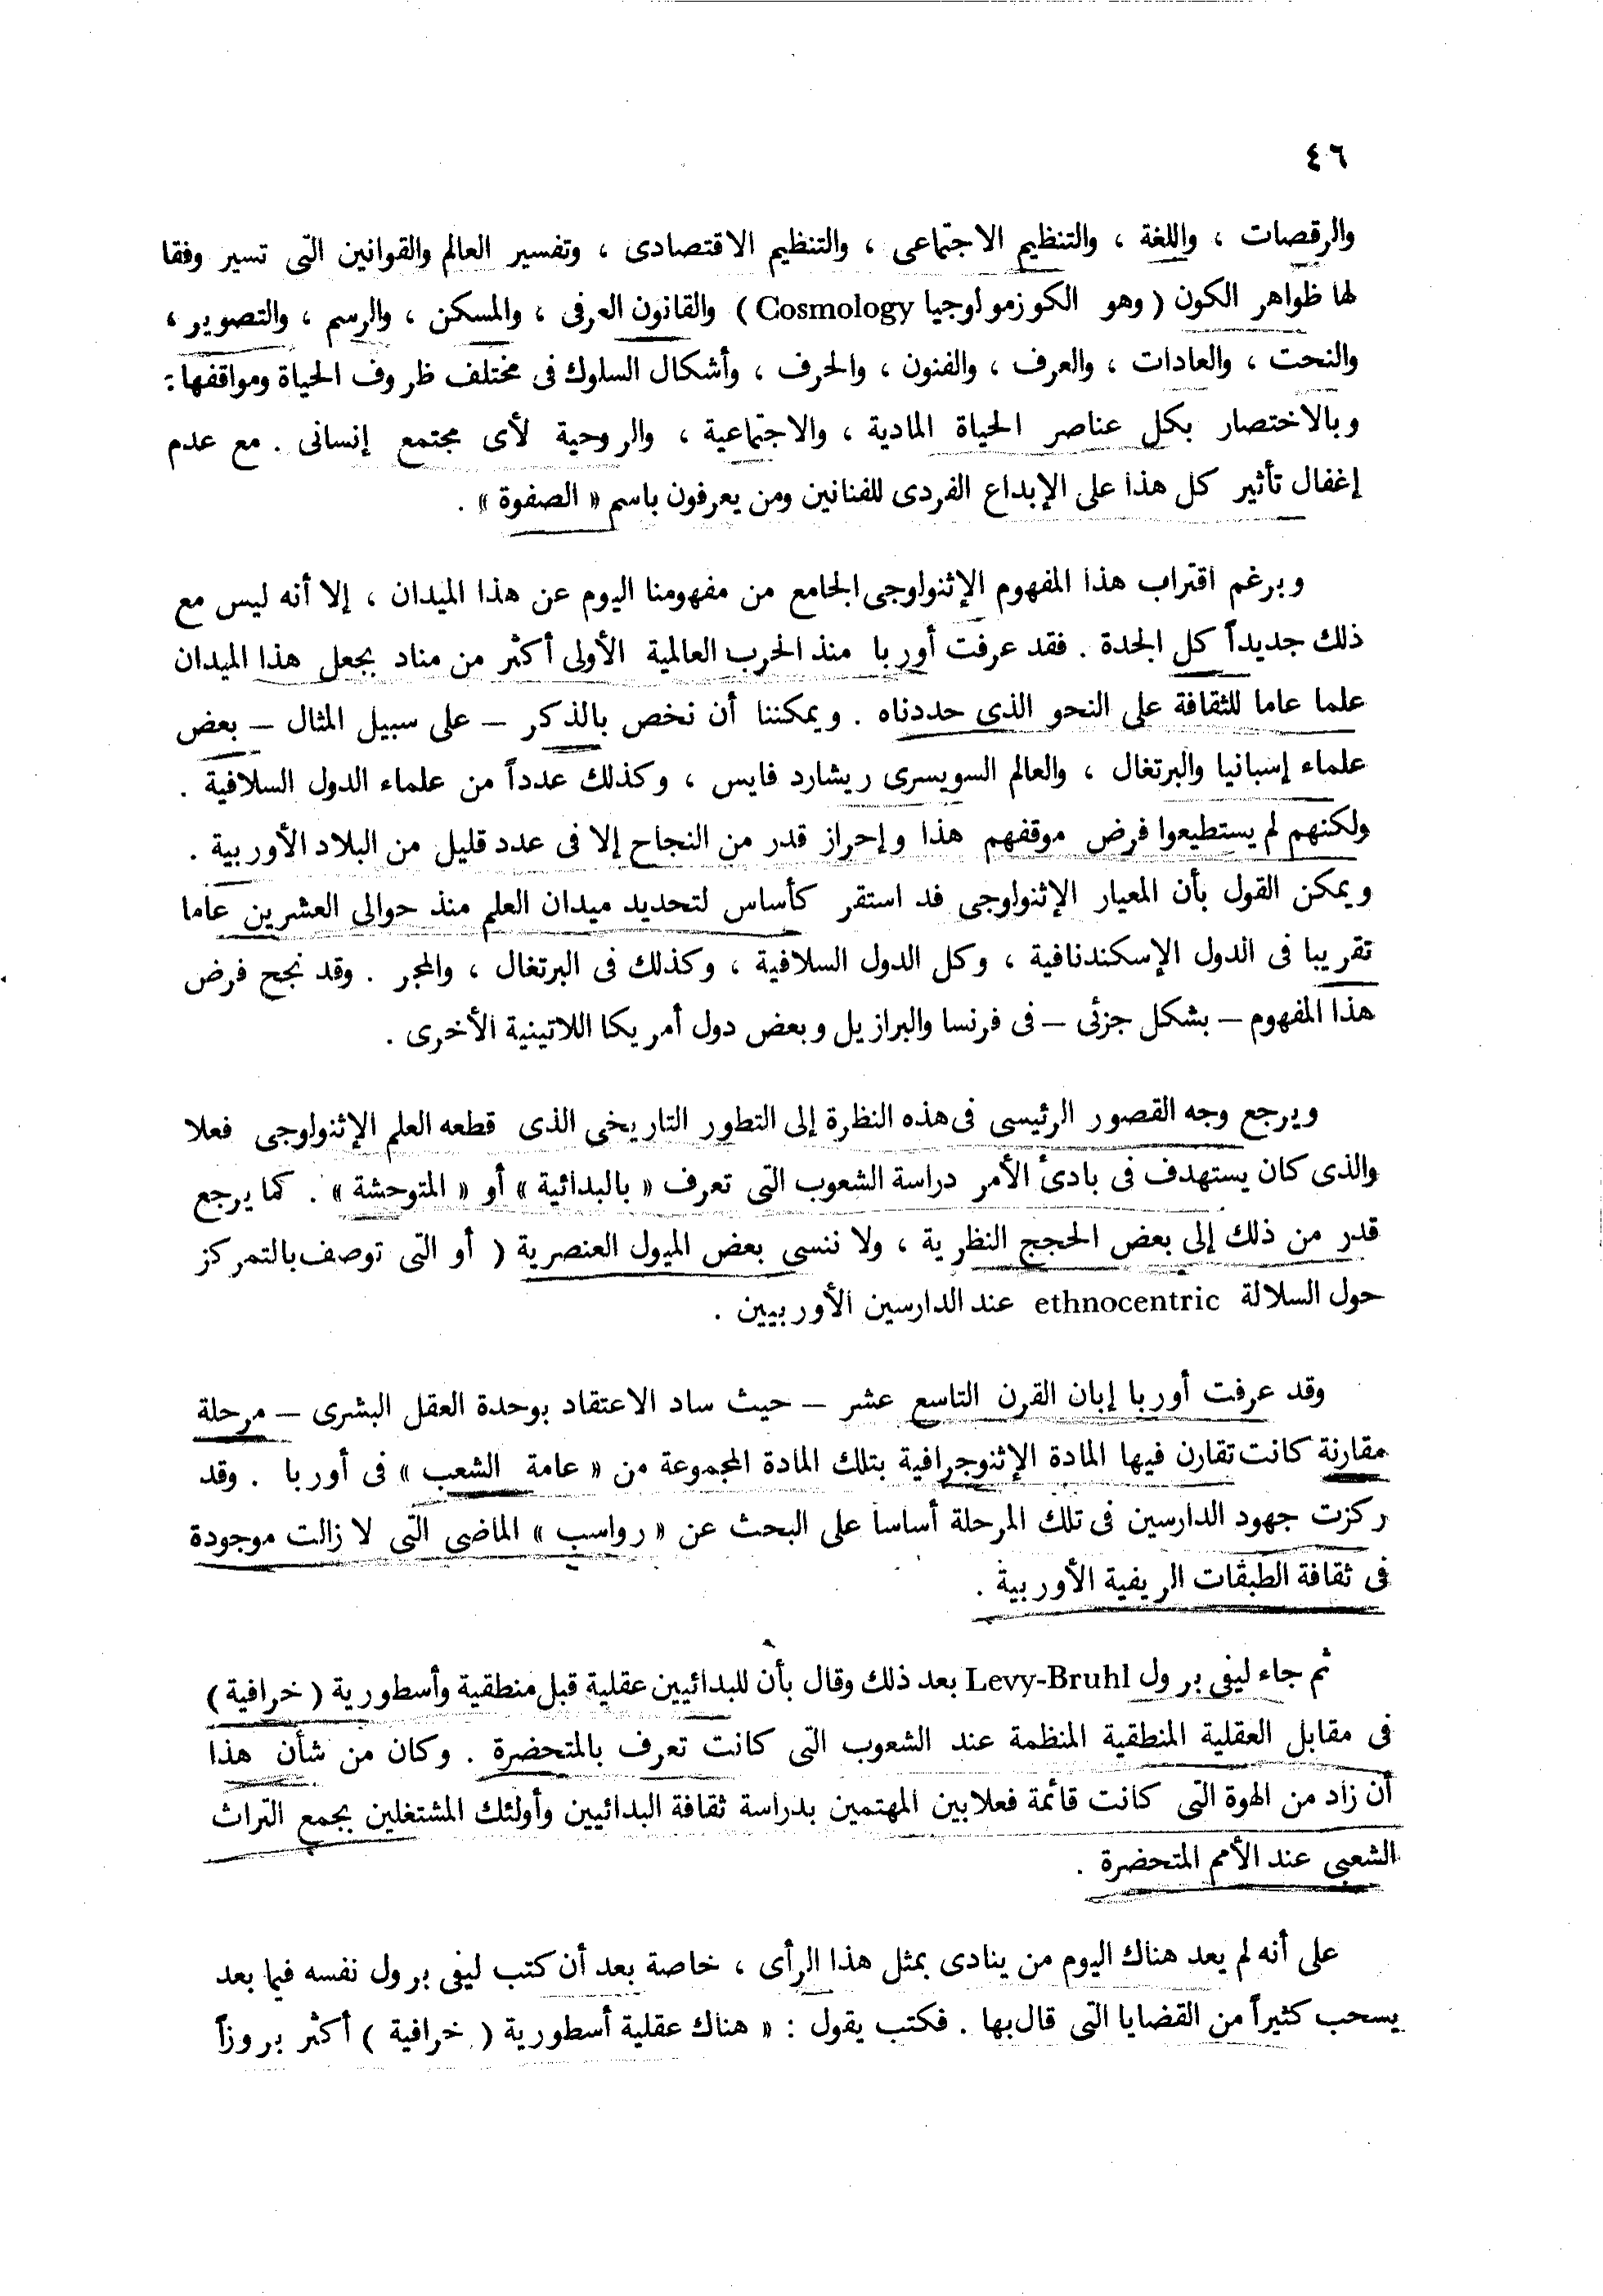 ٤٦
والرقصات ، واللغة ، والتنظيم الاجتماعى ، والتنظيم الاقتصادى ، وتفسير العالم والقوانين التى تسير وفقا
لها ظواهر الكون ( وهو الكوزمولوجيا Cosmology ) والقانون العرفى ، والمسكن ، والرسم ، والتصوير ،
والنحت ، والعادات ، والعرف ، والفنون ، والحرف ، وأشكال السلوك فى مختلف ظروف الحياة ومواقفها :
وبالاختصار بكل عناصر الحياة المادية ، والاجتماعية ، والروحية لأى مجتمع إنسانى . مع عدم
إغفال تأثير كل هذا على الإبداع الفردى للفنانين ومن يعرفون باسم « الصفوة » .
وبرغم اقتراب هذا المفهوم الإثنولوجى الجامع من مفهومنا اليوم عن هذا الميدان ، إلا أنه ليس مع
ذلك جديداً كل الجدة . فقد عرفت أوربا منذ الحرب العالمية الأولى أكثر من مناد بجعل هذا الميدان
علما عاما للثقافة على النحو الذى حددناه . ويمكننا أن نخص بالذكر – على سبيل المثال – بعض
علماء إسبانيا والبرتغال ، والعالم السويسرى ريشارد فايس ، وكذلك عدداً من علماء الدول السلافية .
ولكنهم لم يستطيعوا فرض موقفهم هذا وإحراز قدر من النجاح إلا فى عدد قليل من البلاد الأوربية .
ويمكن القول بأن المعيار الإثنولوجى قد استقر كأساس لتحديد ميدان العلم منذ حوالى العشرين عاما
تقريبا فى الدول الإسكندنافية ، وكل الدول السلافية ، وكذلك فى البرتغال ، والمجر . وقد نجح فرض
هذا المفهوم – بشكل جزئى – فى فرنسا والبرازيل وبعض دول أمريكا اللاتينية الأخرى .
ويرجع وجه القصور الرئيسى فى هذه النظرة إلى التطور التاريخى الذى قطعه العلم الإثنولوجى فعلا
والذى كان يستهدف فى بادئ الأمر دراسة الشعوب التى تعرف « بالبدائية » أو « المتوحشة » . كما يرجع
قدر من ذلك إلى بعض الحجج النظرية ، ولا ننسى بعض الميول العنصرية ( أو التى توصف بالتمركز
حول السلالة ethnocentric عند الدارسين الأوربيين .
وقد عرفت أوربا إبان القرن التاسع عشر – حيث ساد الاعتقاد بوحدة العقل البشرى – مرحلة
مقارنة كانت تقارن فيها المادة الإثنوجرافية بتلك المادة المجموعة من « عامة الشعب » فى أوربا . وقد
ركزت جهود الدارسين فى تلك المرحلة أساسا على البحث عن « رواسب » الماضى التى لا زالت موجودة
فى ثقافة الطبقات الريفية الأوربية .
ثم جاء ليفى برول Levy-Bruhl بعد ذلك وقال بأن للبدائيين عقلية قبل منطقية وأسطورية ( خرافية )
فى مقابل العقلية المنطقية المنظمة عند الشعوب التى كانت تعرف بالمتحضرة . وكان من شأن هذا
أن زاد من الهوة التى كانت قائمة فعلا بين المهتمين بدراسة ثقافة البدائيين وأولئك المشتغلين بجمع التراث
الشعبى عند الأمم المتحضرة .
على أنه لم يعد هناك اليوم من ينادى بمثل هذا الرأى ، خاصة بعد أن كتب ليفى برول نفسه فيما بعد
يسحب كثيراً من القضايا التى قال بها . فكتب يقول : « هناك عقلية أسطورية ( خرافية ) أكثر بروزاً